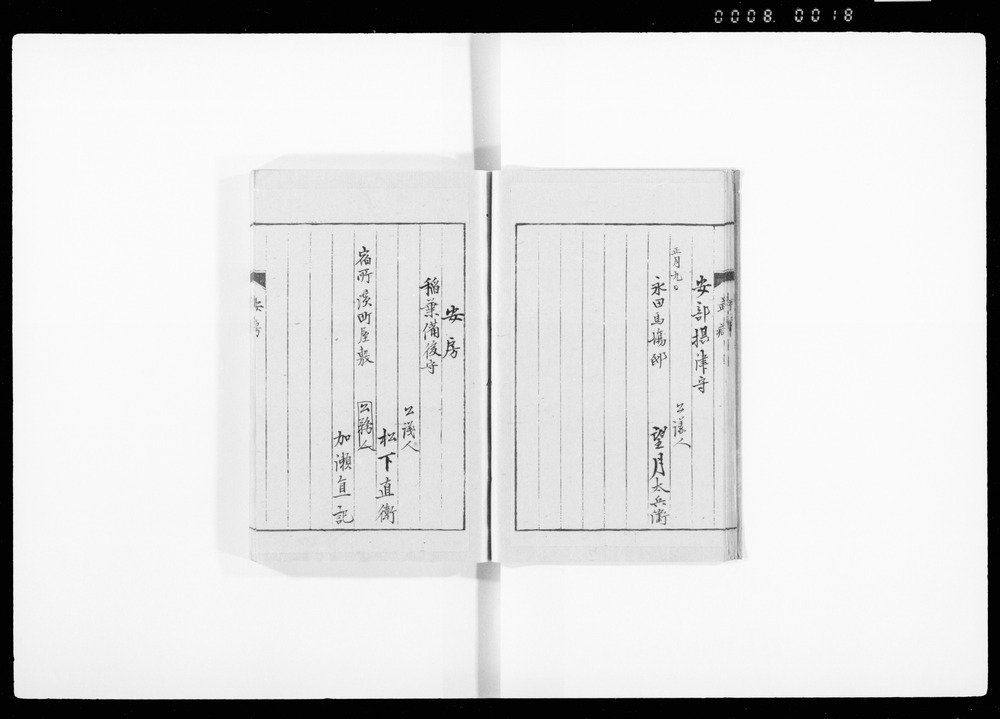 0008.0018
武蔵
安部摂津守
正月九日
公議人
永田馬場邸
望月太兵衛
安房
稲葉備後守
公議人
松下直衛
宿所濱町屋敷
公務人
加瀬直記
安房